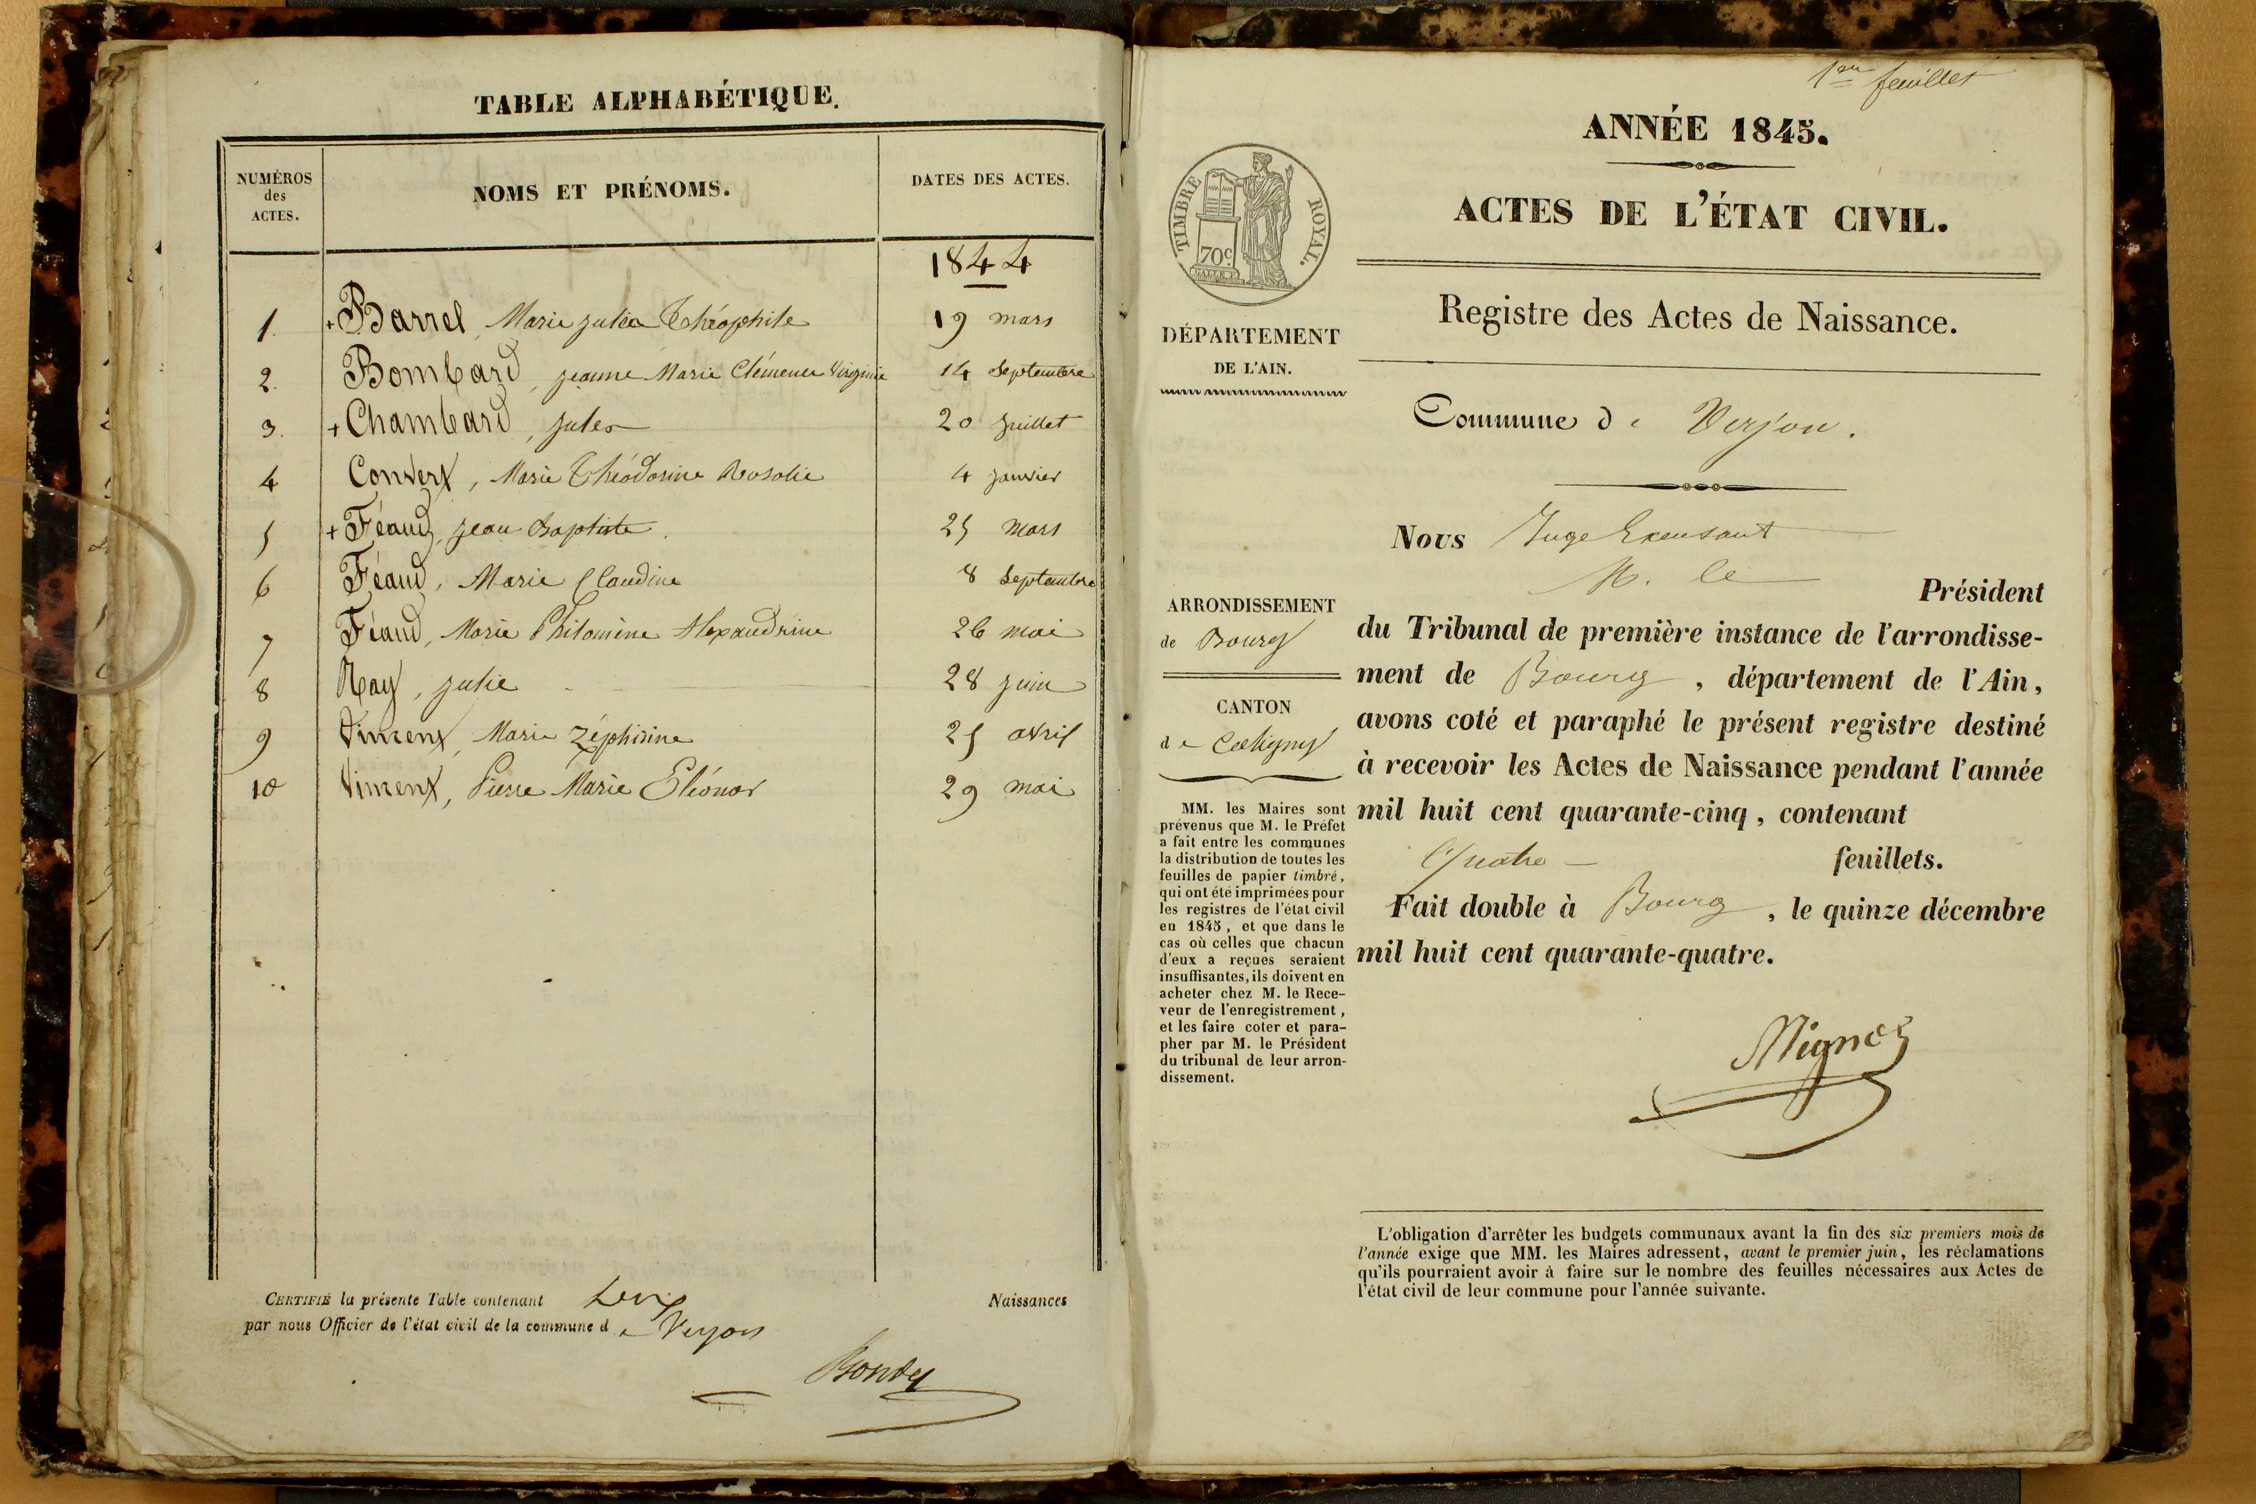 TABLE ALPHABÉTIQUE.
NUMÉROS
des
ACTES.
NOMS ET PRÉNOMS.
DATES DES ACTES.
1844
1 + Barrel, Marie Julie Théophile 19 mars
2. Bombard, Jeanne Marie Clémence Virginie 14 Septembre
3. + Chambard, Jules 20 Juillet
4 Convert, Marie Théodorine Rosalie 4 Janvier
5 + Féaud, Jean Baptiste. 25 Mars
6 Féaud, Marie Claudine 8 Septembre
7 Féaud, Marie Philomène Alexandrine 26 mai
8 Ray, Julie 28 Juin
9 Vincent, Marie Zéphirine 25 avril
10 Vincent, Pierre Marie Eléonor 29 mai
CERTIFIÉ la présente Table contenant Naissances
par nous Officier de l'état civil de la commune de Verjon
1er feuillet
ANNÉE 1845.
ACTES DE L'ÉTAT CIVIL.
TIMBRE ROYAL.
70c
Registre des Actes de Naissance.
DÉPARTEMENT
DE L'AIN.
Commune de Verjon.
ARRONDISSEMENT
de Bourg
CANTON
de Coligny
MM. les Maires sont
prévenus que M. le Préfet
a fait entre les communes
la distribution de toutes les
feuilles de papier timbré,
qui ont été imprimées pour
les registres de l'état civil
en 1845, et que dans le
cas où celles que chacun
d'eux a reçues seraient
insuffisantes, ils doivent en
acheter chez M. le Rece-
veur de l'enregistrement,
et les faire coter et para-
pher par M. le Président
du tribunal de leur arron-
dissement.
Nous Juge
M. le Président
du Tribunal de première instance de l'arrondisse-
ment de Bourg, département de l'Ain,
avons coté et paraphé le présent registre destiné
à recevoir les Actes de Naissance pendant l'année
mil huit cent quarante-cinq, contenant
Quatre feuillets.
Fait double à Bourg, le quinze décembre
mil huit cent quarante-quatre.
L'obligation d'arrêter les budgets communaux avant la fin des six premiers mois de
l'année exige que MM. les Maires adressent, avant le premier juin, les réclamations
qu'ils pourraient avoir à faire sur le nombre des feuilles nécessaires aux Actes de
l'état civil de leur commune pour l'année suivante.